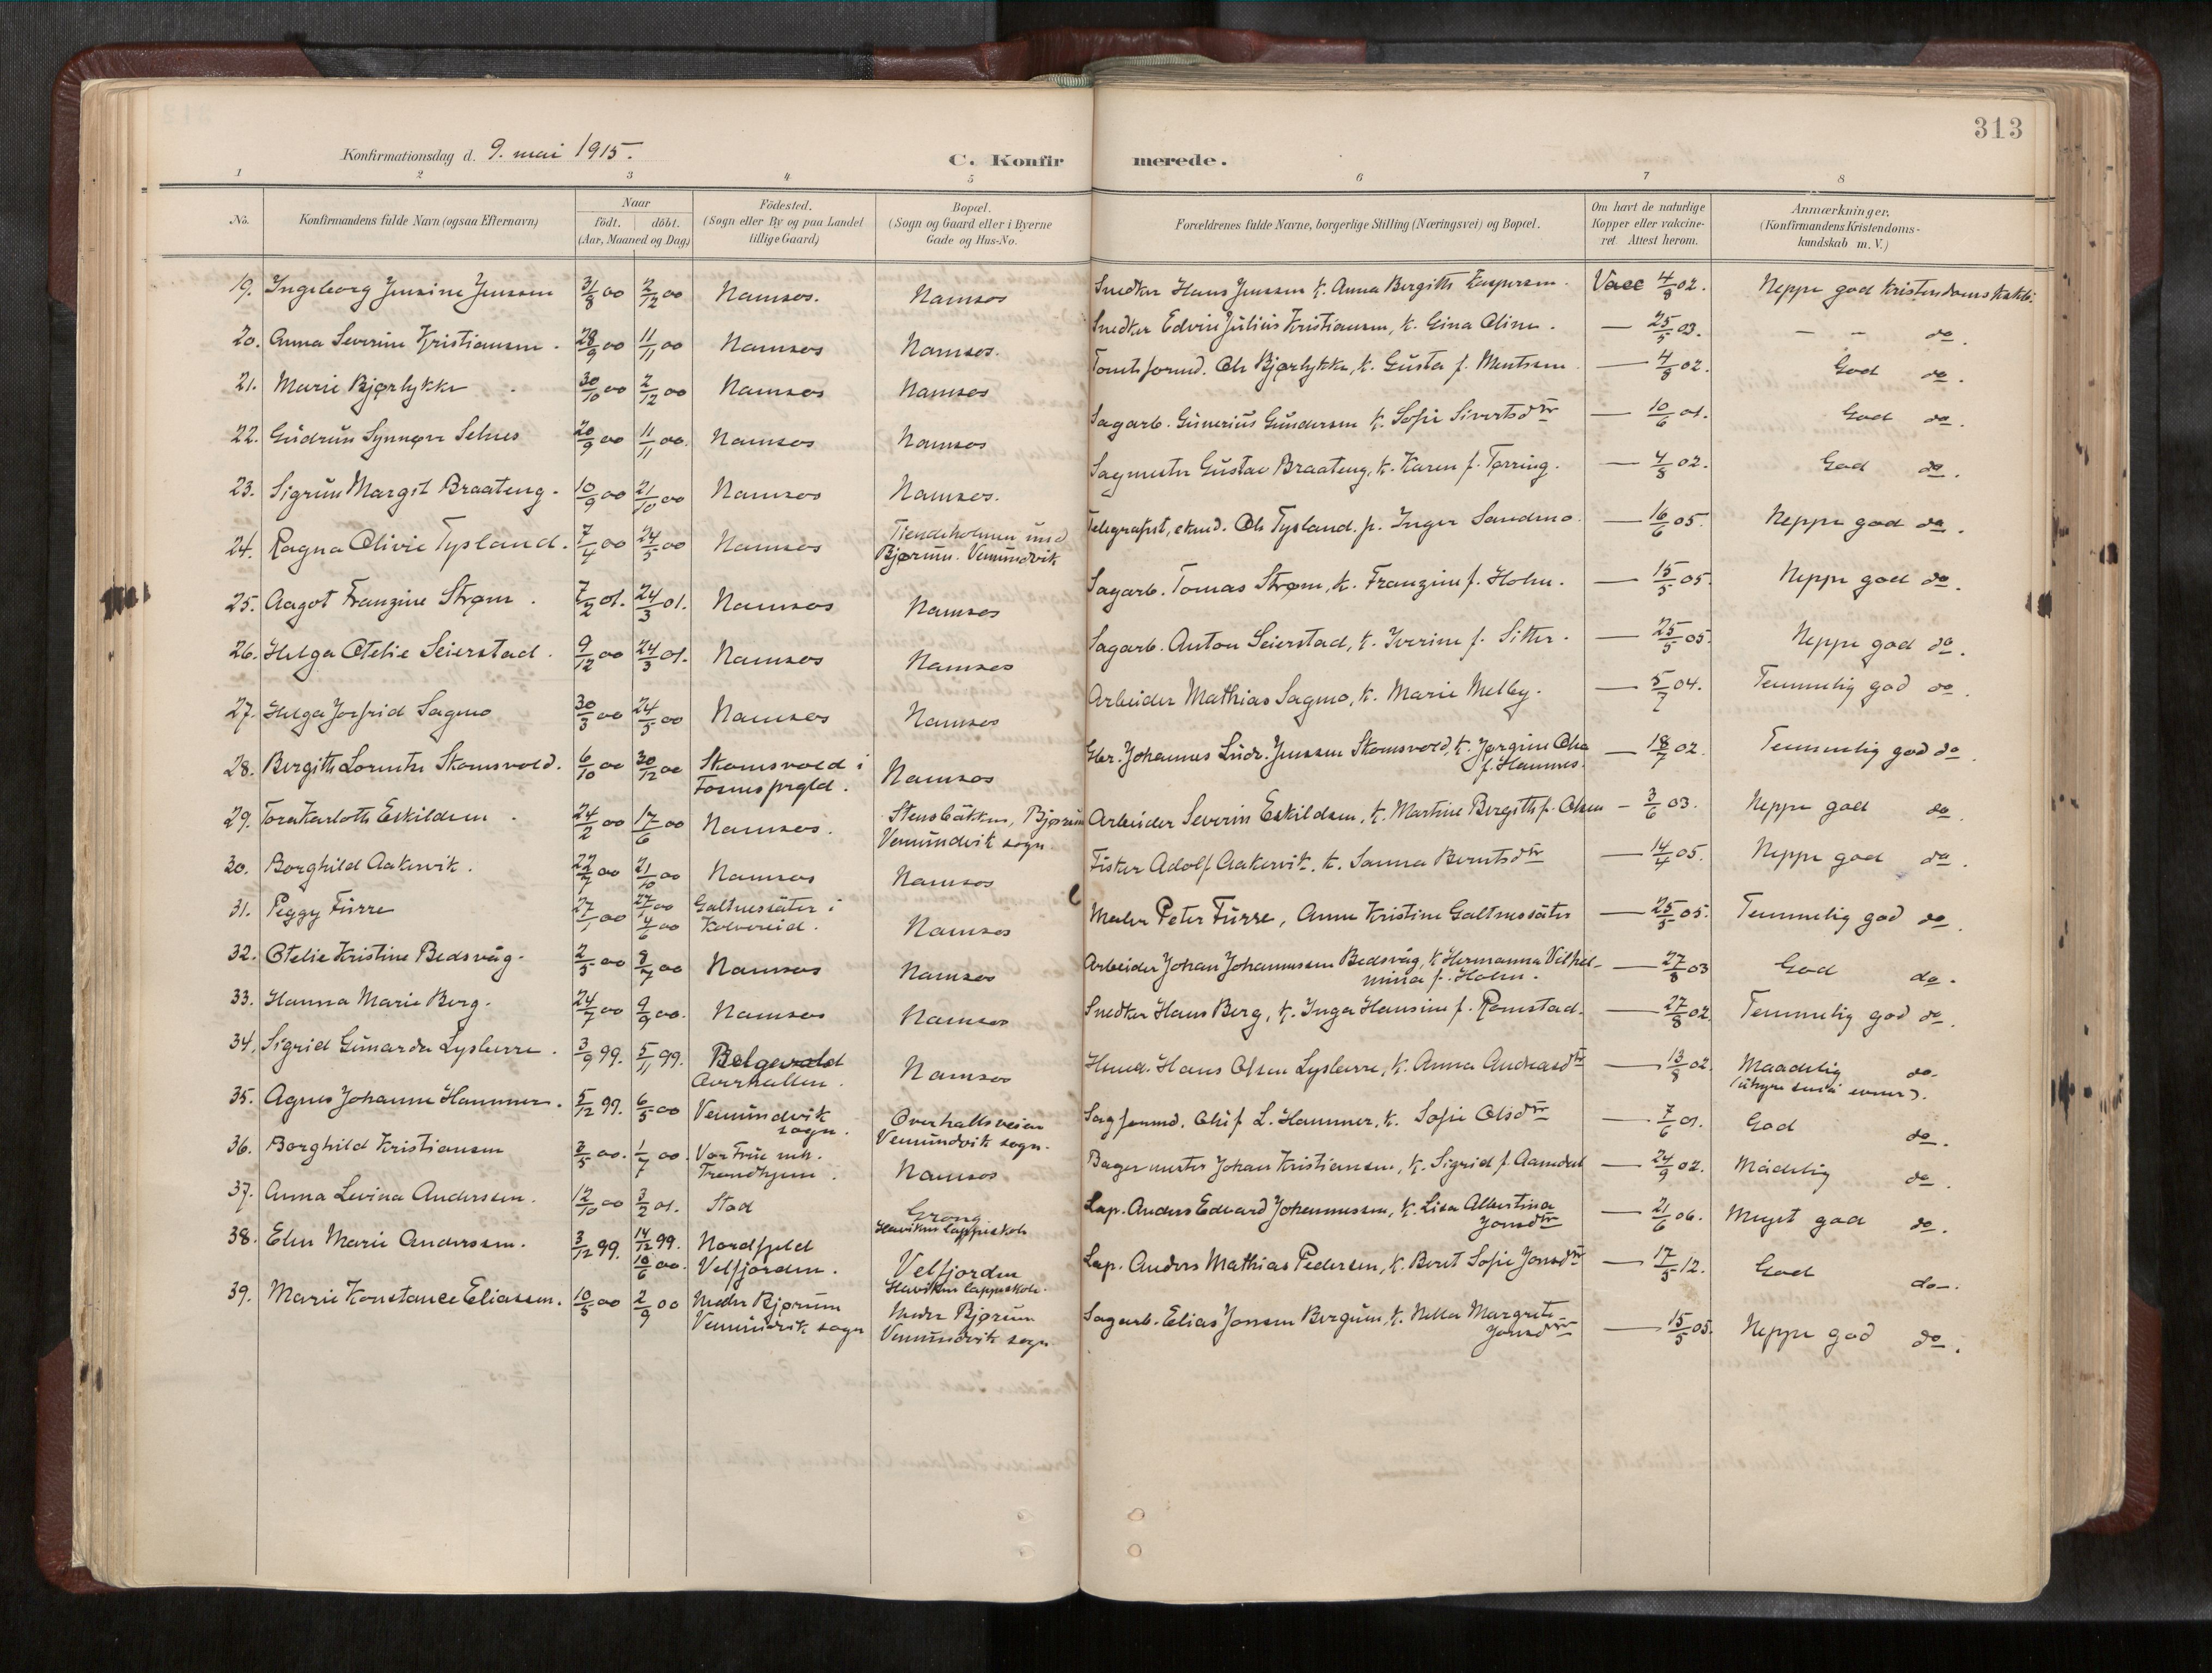 313
Konfirmationsdag d. 9. mai 1915.
C. Konfirmerede.
1 2 3 4 5 6 7 8
No. Konfirmandens fulde Navn (ogsaa Efternavn) Naar født. døbt. (Aar, Maaned og Dag) Födested. (Sogn eller By og paa Landet tillige Gaard) Bopæl. (Sogn og Gaard eller i Byerne Gade og Hus-No. Forældrenes fulde Navne, borgerlige Stilling (Næringsvei) og Bopæl. Om havt de naturlige Kopper eller vakcineret. Attest herom. Anmærkninger. (Konfirmandens Kristendomskundskab m. V.)
19. Ingeborg Jensine Jenssen 31/8 00 2/12 00 Namsos. Namsos Snedker Hans Jenssen k. Anna Bergitte Kaspersen. Vacc 4/8 02. Neppe god Kristendomskskb.
20. Anna Severine Kristiansen. 28/9 00 11/11 00 Namsos Namsos. Snedker Edvin Julius Kristiansen, k. Gina Oline. — 25/5 03. — — do.
21. Marie Bjørlykke. 30/10 00 2/12 00 Namsos Namsos Tomtsformd. Ole Bjørlykke, k. Gusta f. Mentsen — 4/8 02. God do.
22. Gudrun Synnøve Selnes 20/9 00 11/11 00. Namsos Namsos Sagarb. Gunerius Gundersen k. Sofie Sivertsdtr — 10/6 01. God do.
23. Sigrun Margit Braateng. 10/9 00 21/10 00 Namsos Namsos. Sagmester Gustav Braateng, k. Karen f. Tørring. — 4/8 02. God do.
24. Ragna Olivie Tysland. 7/4 00 24/5 00 Namsos Tiendeholmen und Bjørum. Vemundvik Telegrafist, Ole Tysland. f. Inger Sandmo. — 16/6 05. Neppe god do.
25. Aagot Franzine Strøm. 7/2 01. 24/3 01. Namsos Namsos Sagarb. Tomas Strøm, k. Franzine f. Holm. — 15/5 05. Neppe god do.
26. Helga Otelie Seierstad. 9/12 00 24/3 01. Namsos Namsos Sagarb. Anton Seierstad, k. Iverine f. Sitter. — 25/5 05. Neppe god do.
27. Helga Jorfrid Sagmo 30/3 00 24/5 00 Namsos Namsos Arbeider Mathias Sagmo, k. Marie Melby. — 5/7 04. Temmelig god do.
28. Bergitte Lorentse Skomsvold. 6/10 00 30/12 00 Skomsvold i Fosnes prgld. Namsos Gbr. Johannes Ludv. Jenssen Skomsvold, k. Jørgine Olea f. Hannes. — 18/7 02. Temmelig god do.
29. Tora Karlotte Eskildsen. 24/2 00 17/6 00 Namsos. Stensbäkken, Bjørum Vemundvik sogn Arbeider Severin Eskildsen, k. Martine Bergitte f. Olsen — 3/6 03. Neppe god do.
30. Borghild Aakervik. 22/7 00 21/10 00 Namsos Namsos Fisker Adolf Aakervik. k. Sanna Berntsdtr — 14/4 05. Neppe god do.
31. Peggy Furre 27/1 00 27/1 00 4/6 00 Galtnessäter i Kolvereid. Namsos Maler Peter Furre, Anne Kristine Galtnessäter — 25/5 05. Temmelig god do.
32. Otelie Kristine Bedsvåg. 2/5 00 8/7 00 Namsos Namsos Arbeider Johan Johannessen Bedsvåg, k Hermanna Vilhelmina f. Holm. — 27/8 03 God do.
33. Hanna Marie Berg. 24/7 00 9/9 00. Namsos Namsos Snedker Hans Berg, k. Inga Hansine f. Ramstad. — 27/8 02. Temmelig god do.
34. Sigrid Gunarda Lysberre. 3/9 99. 5/11 99. Belgevold Overhallen. Namsos Hans Olsen Lysberre, k. Anna Andreasdtr — 13/8 02. Maadelig do. (uhyre små evner).
35. Agnes Johanne Hammer. 5/12 99. 6/5 00 Vemundvik sogn. Overhallsveien Vemundvik sogn. Sagformd. Oluf L. Hammer, k. Sofie Olsdtr — 7/6 01. God do.
36. Borghild Kristiansen 3/5 00. 1/7 00. Vor Frue mh. Trondhjem. Namsos Bagermester Johan Kristiansen, k. Sigrid f. Aamdal — 24/9 02. Mådelig do.
37. Anna Levina Anderssen. 12/10 00 3/2 01. Stod Grong Havikens lappeskole Lap. Anders Edvard Johannessen, k. Lisa Albertina Jonsdtr — 21/6 06. Meget god do.
38. Elen Marie Anderssen. 3/12 99. 14/12 99. 10/6 00. Nordfjeld Velfjorden. Velfjorden Havikens lappeskole. Lap. Anders Mathias Pedersen, k. Beret Sofie Jonsdtr — 17/5 12. God do.
39. Marie Konstance Eliassen. 10/5 00 2/9 00 Nedre Bjørum Vemundvik sogn Nedre Bjørum Vemundvik sogn. Sagarb. Elias Jonsen Bergum, k. Nella Margrete Jonsdtr — 15/5 05. Neppe god do.